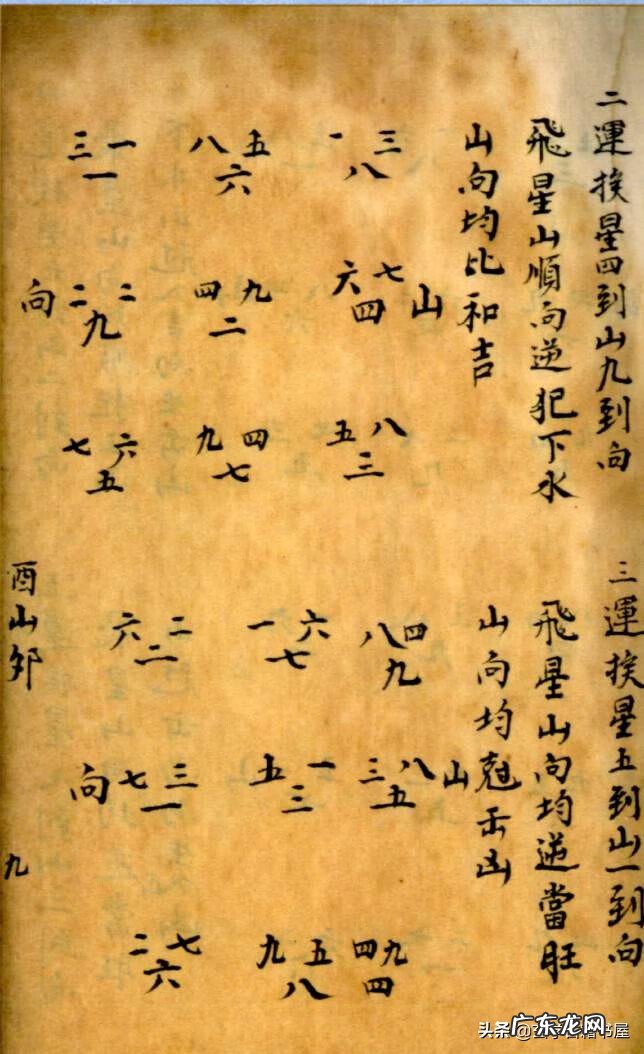 二運挨星四到山九到向
飛星山順向逆犯下水
山向均比和吉
三一 八五 一三
一 六 八
向 二二 四九 六七 山
九 二 四
七六 九四 五八
五 七 三
三運挨星五到山一到向
飛星山向均逆當旺
山向均尅凶
六二 一六 八四
二 七 九
向 七三 五一 三八 山
一 三 五
二七 九五 四九
六 八 四
酉山卯
九
头条
书屋
广东龙网